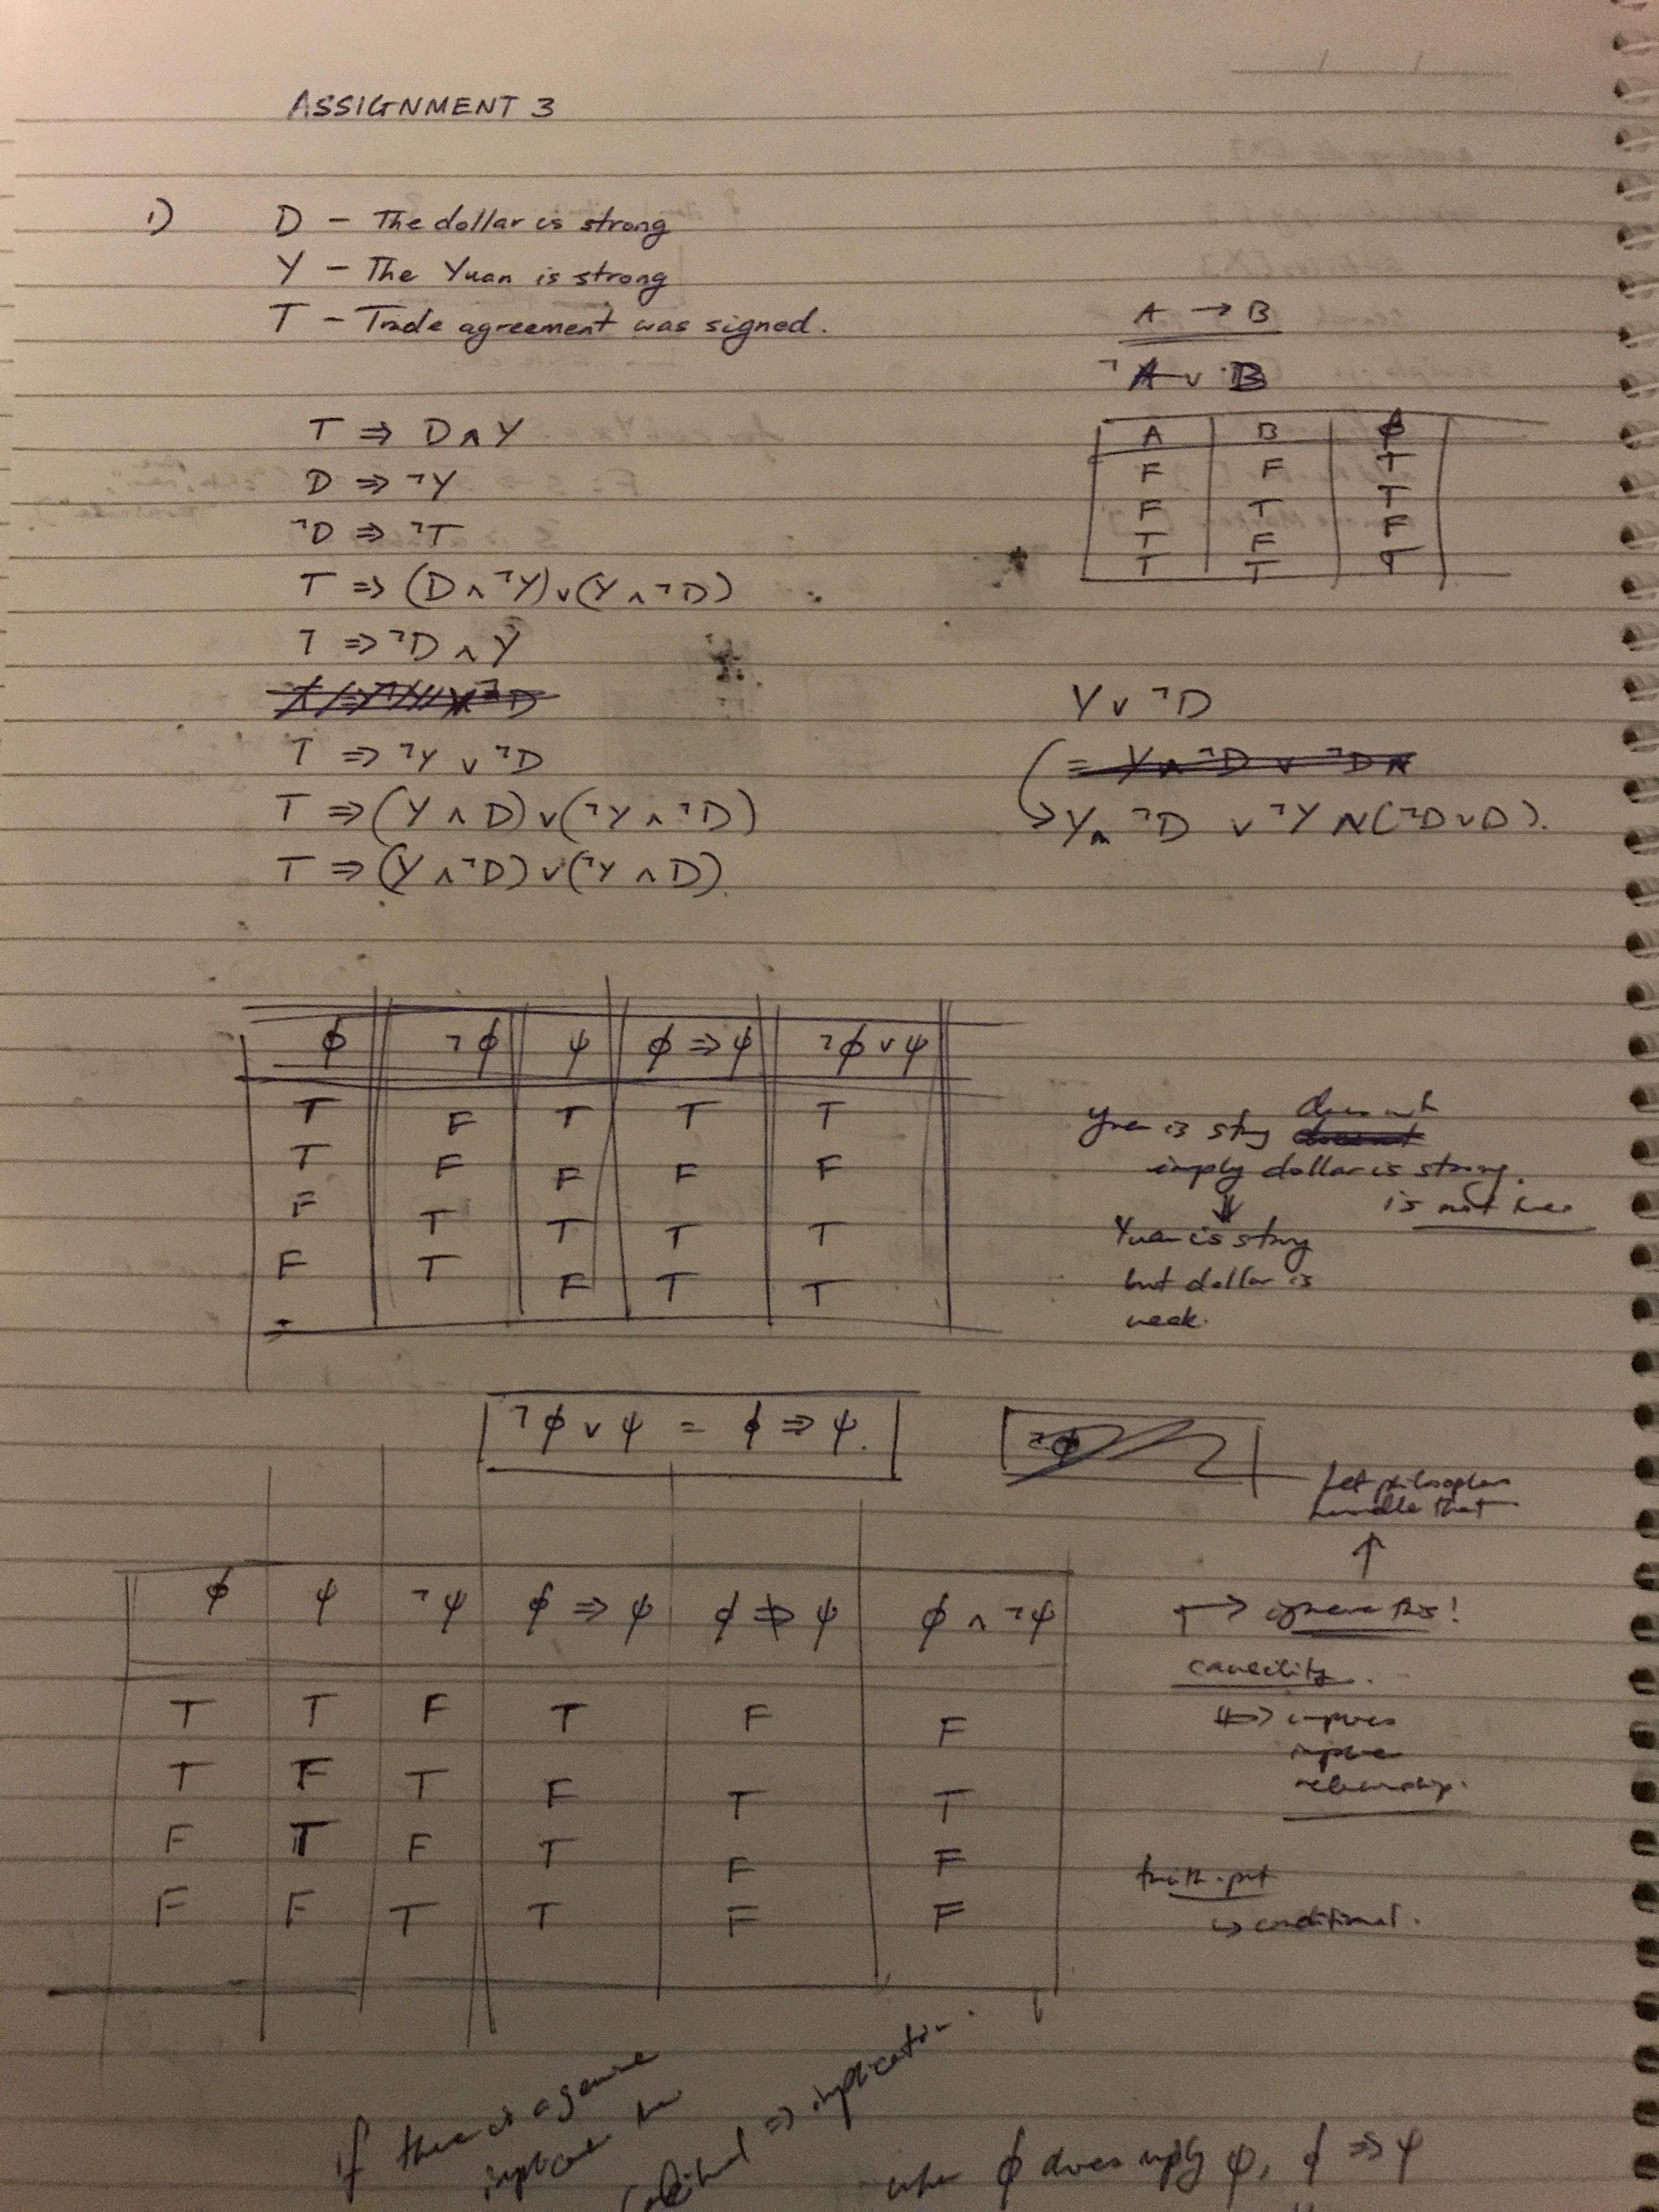 ASSIGNMENT 3
1) D - The dollar is strong
Y - The Yuan is strong
T - Trade agreement was signed.
T ⇒ D ∧ Y
D ⇒ ¬Y
¬D ⇒ ¬T
T ⇒ (D ∧ ¬Y) ∨ (Y ∧ ¬D)
T ⇒ ¬D ∧ Y
T ⇒ ¬Y ∨ ¬D
T ⇒ (Y ∧ D) ∨ (¬Y ∧ ¬D)
T ⇒ (Y ∧ ¬D) ∨ (¬Y ∧ D).
A → B
¬A ∨ B
A B ϕ
F F T
F T T
T F F
T T T
Y ∨ ¬D
= Y ∧ ¬D ∨ ¬D ∧
Y ∧ ¬D ∨ ¬Y ∧ (¬D ∨ D).
ϕ ¬ϕ ψ ϕ ⇒ ψ ¬ϕ ∨ ψ
T F T T T
T F F F F
F T T T T
F T F T T
Yuan is strong does not
imply dollar is strong.
is not true
Yuan is strong
but dollar is
weak.
¬ϕ ∨ ψ = ϕ ⇒ ψ.
¬ϕ
Let philosophers
handle that
ϕ ψ ¬ψ ϕ ⇒ ψ ϕ ⇏ ψ ϕ ∧ ¬ψ
T T F T F F
T F T F T T
F T F T F F
F F T T F F
ignore this!
relationship.
truth part
↳ conditional.
if there is a genuine
⇒ implication.
when ϕ does imply ψ, ϕ ⇒ ψ